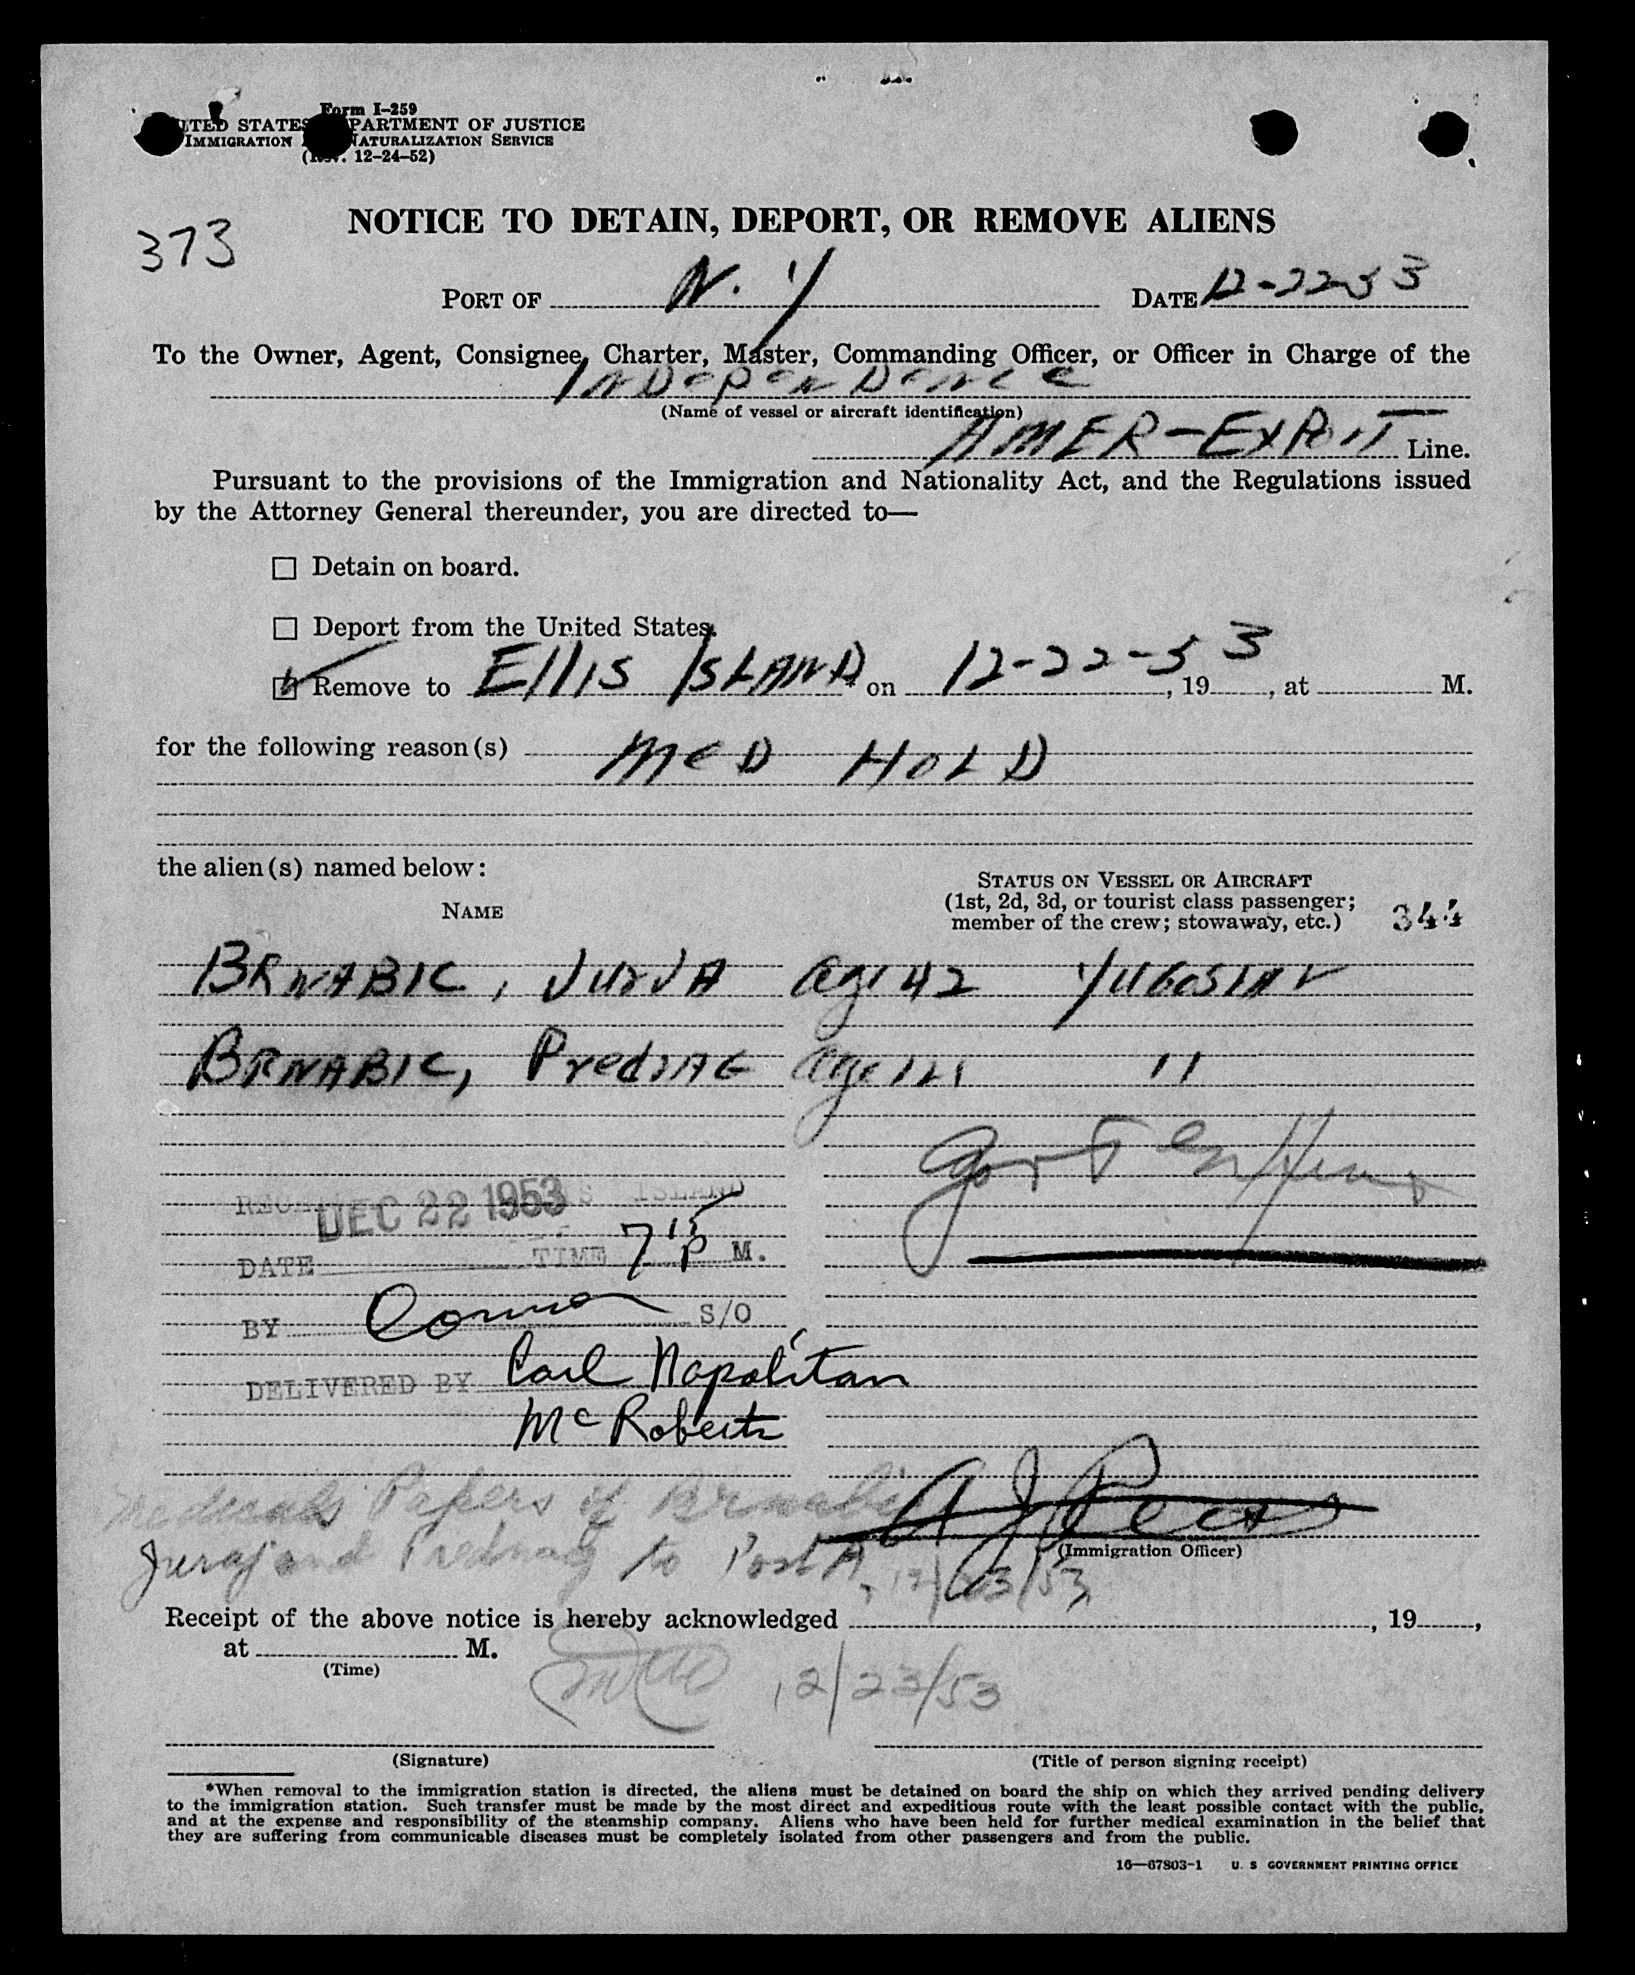 Form I-259
UNITED STATES DEPARTMENT OF JUSTICE
IMMIGRATION NATURALIZATION SERVICE
(Rev. 12-24-52)
373
NOTICE TO DETAIN, DEPORT, OR REMOVE ALIENS
PORT OF N. Y DATE 12-22-53
To the Owner, Agent, Consignee, Charter, Master, Commanding Officer, or Officer in Charge of the
InDepenDence
(Name of vessel or aircraft identification)
AMER-EXPORT Line.
Pursuant to the provisions of the Immigration and Nationality Act, and the Regulations issued
by the Attorney General thereunder, you are directed to—
☐ Detain on board.
☐ Deport from the United States.
☑ Remove to Ellis ISLAND * on 12-22-53, 19 , at M.
for the following reason(s) MED HOLD
the alien(s) named below:
STATUS ON VESSEL OR AIRCRAFT
(1st, 2d, 3d, or tourist class passenger;
member of the crew; stowaway, etc.) 344
NAME
BRNABIC, JurJA age 42 YUGOSLAV
BRNABIC, PredrAG age "
REC ISLAND
DEC 22 1953
DATE TIME 7 15 P M.
BY S/O
DELIVERED BY Carl Napolitan
McRoberts
Medicals Papers of Brnabic
Juraj and Predrag to Post A, 12/23/53
(Immigration Officer)
Receipt of the above notice is hereby acknowledged , 19 ,
at M.
(Time)
12/23/53
(Signature) (Title of person signing receipt)
*When removal to the immigration station is directed, the aliens must be detained on board the ship on which they arrived pending delivery
to the immigration station. Such transfer must be made by the most direct and expeditious route with the least possible contact with the public,
and at the expense and responsibility of the steamship company. Aliens who have been held for further medical examination in the belief that
they are suffering from communicable diseases must be completely isolated from other passengers and from the public.
16—67803-1 U. S GOVERNMENT PRINTING OFFICE